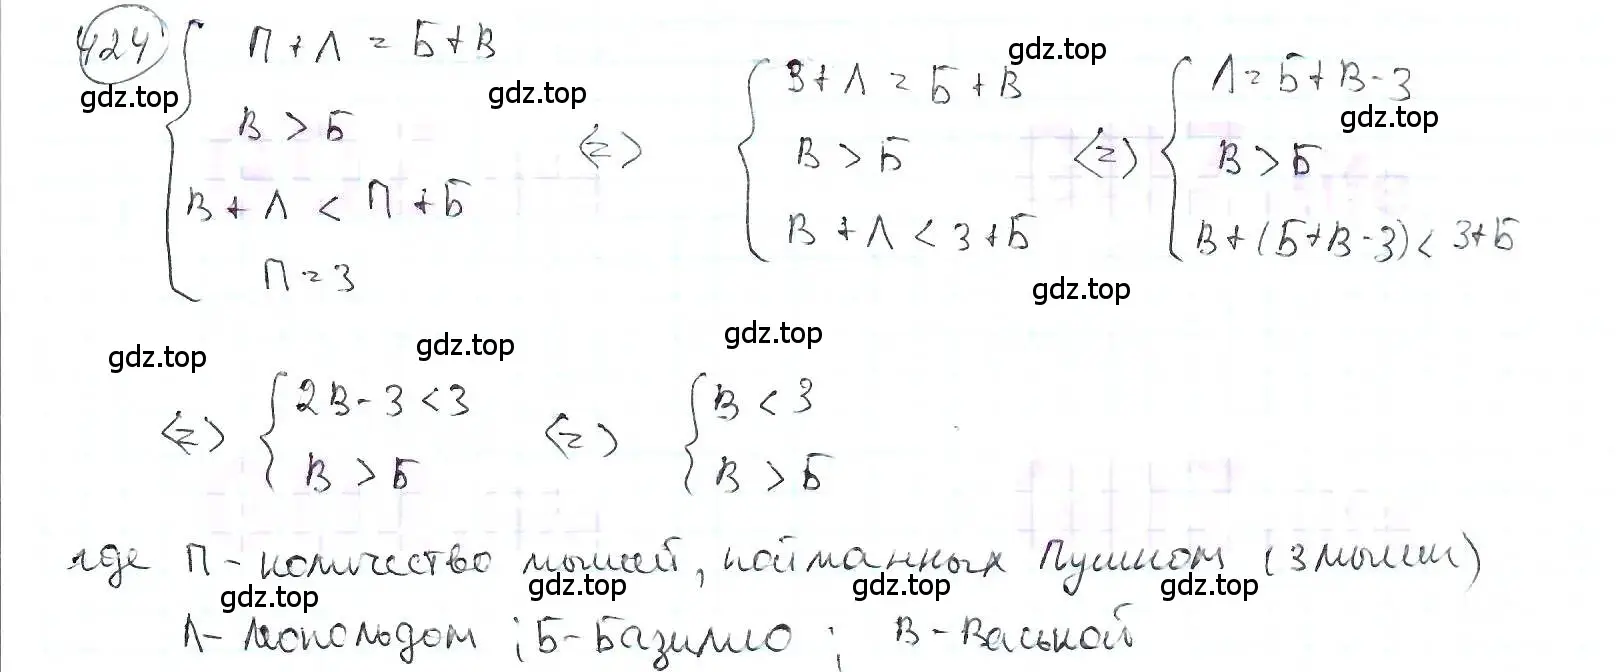 424 П + Л = Б + В
В > Б
В + Л < П + Б
П = 3
<=> 3 + Л = Б + В
В > Б
В + Л < 3 + Б
<=> Л = Б + В - 3
В > Б
В + (Б + В - 3) < 3 + Б
<=> 2В - 3 < 3
В > Б
<=> В < 3
В > Б
где П - количество мышей, пойманных Пушком (3 мыши)
Л - Леопольдом ; Б - Базилио ; В - Васькой
gdz.top
gdz.top
gdz.top
gdz.top
gdz.top
gdz.top
gdz.top
gdz.top
gdz.top
gdz.top
gdz.top
gdz.top